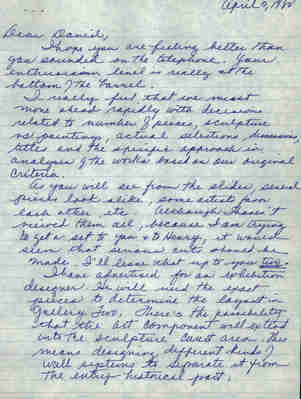 April 9, 198
Dear Daniel,
I hope you are feeling better than
you sounded on the telephone. Your
enthusiasm level is really at the
bottom of the barrel.
I really feel that we must
move ahead rapidly with decisions
related to number of pieces, sculpture
vs. paintings, actual selections,
titles and the specific approach in
analyses of the works based on our original
criteria.
As you will see from the slides, several
pieces look alike, some artist from
each other, etc. Although I haven't
viewed them all, because I am trying
to get a set to you & to Henry, it would
seem that some cuts should be
made. I'll leave that up to you two.
I have advertised for an exhibition
designer. He will need the exact
pieces to determine the layout in
Gallery Two. There's the possibility
that the art component will extend
into the sculpture court area. This
means designing different kinds of
wall systems to separate it from
the entry historical part.